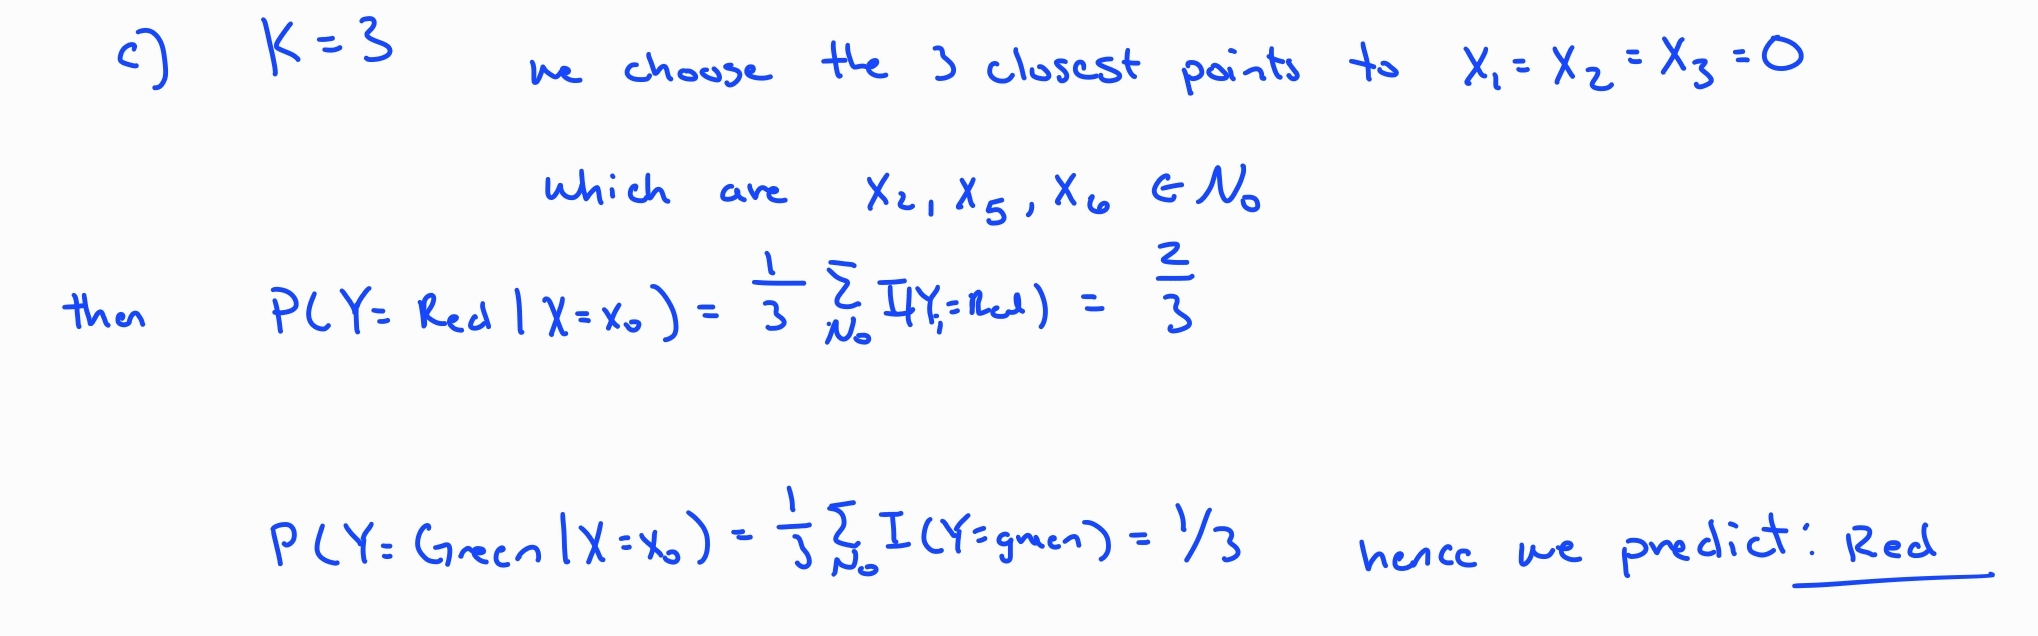 c) K = 3 we choose the 3 closest points to X₁ = X₂ = X₃ = 0
which are X₂, X₅, X₆ ∈ N₀
then P(Y= Red | X=x₀) = 1/3 Σ_N₀ I(Yᵢ=Red) = 2/3
P(Y= Green | X=x₀) = 1/3 Σ_N₀ I(Y=green) = 1/3 hence we predict: Red